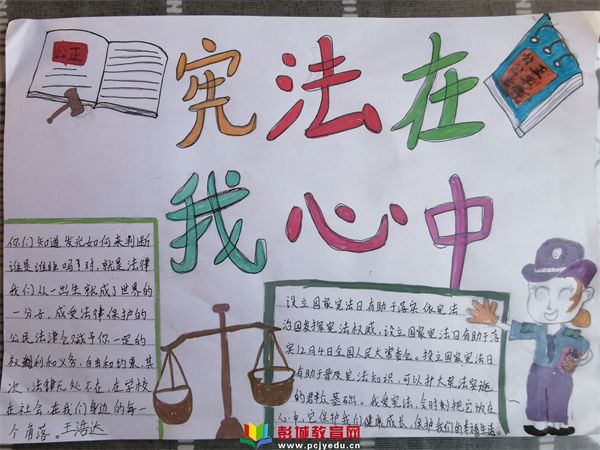 公正
宪法在
我心中
你们知道发光如何来判断
谁是谁非吗？对，就是法律
我们从一出生就成了世界的
一分子，成受法律保护的
公民法律会赋予你一定的
权利和义务，自由和约束，其
次，法律无处不在，在学校
在社会，在我们身边的每一
个角落。王浩达
设立国家宪法日有助于落实依宪法
治国发挥宪法权威，设立国家宪法日有助于落
实12月4日全国人民大常委会。设立国家宪法日
有助于普及宪法知识，可以扩大宪法实施
的群众基础。我爱宪法，会时刻把它放在
心中，它保护我们健康成长，保护我们的幸福生活。
彭城教育网
www.pcjyedu.cn